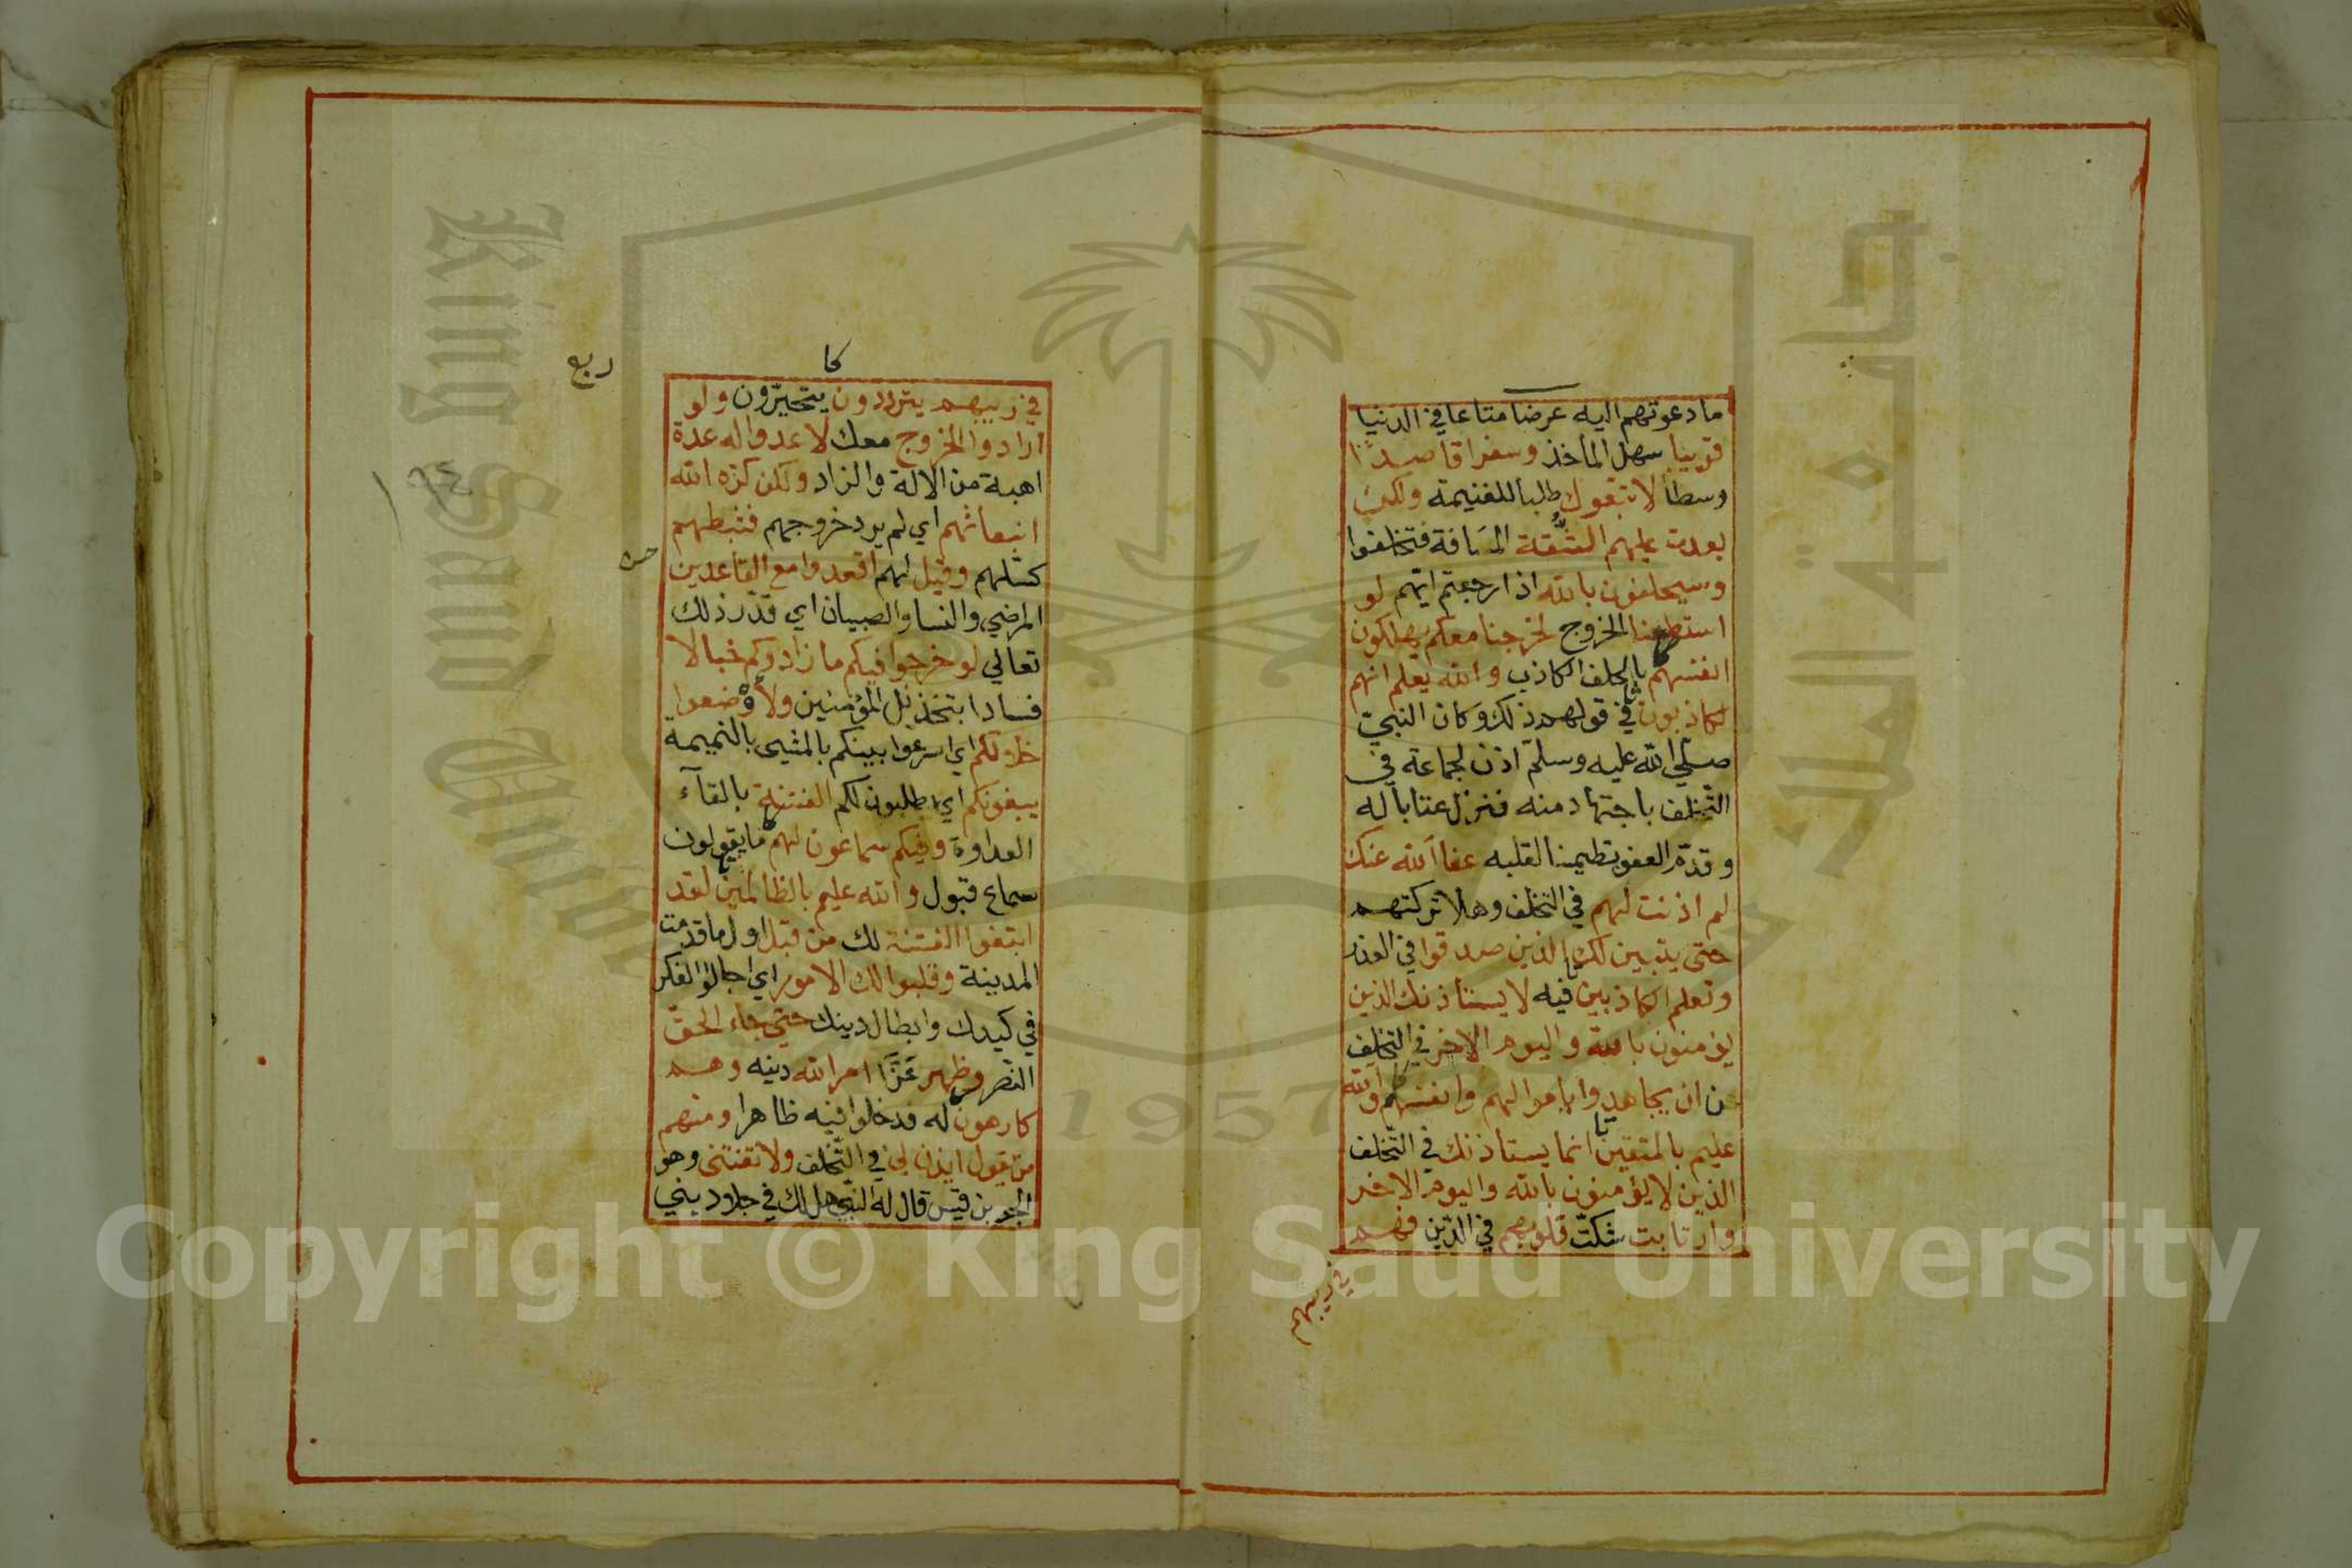 ما دعوتهم اليه عرضا متاعا في الدنيا
قريبا سهل المأخذ وسفرا قاصدا
وسطا لاتبعوك طلبا للغنيمة ولكن
بعدت عليهم الشُّقة المسَافة فتخلفوا
وسيحلفون بالله اذا رجعتم اليهم لو
استطعنا الخروج لخرجنا معكم يهلكون
انفسهم بالحلف الكاذب والله يعلم انهم
لكاذبون في قولهم ذلك وكان النبي
صلّي الله عليه وسلم اذن لجماعة في
التّخلف باجتهاد منه فنزل عتابا له
وقدّم العفو تطمينا لقلبه عفا الله عنك
لم اذنت لهم في التخلف وهلا تركتهم
حتى يتبين لك الذين صدقوا في العذر
وتعلم الكاذبين فيه لا يستأذنك الذين
يؤمنون بالله واليوم الاخر في التخلف
عن ان يجاهدوا باموالهم وانفسهم والله
عليم بالمتقين انما يستأذنك في التّخلف
الذين لا يؤمنون بالله واليوم الاخر
وارتابت شكّت قلوبهم في الدّين فهم
في ريبهم
كا
ربع
في ريبهم يترددون يتحيّرون ولو
ارادوا الخروج معك لاعدوا له عدة
اهبة من الالة والزاد ولكن كره الله
انبعاثهم اي لم يرد خروجهم فثبطهم
كسّلهم وقيل لهم اقعدوا مع القاعدين
المرضي والنسا والصبيان اي قدّر ذلك
تعالي لو خرجوا فيكم ما زادوكم خبالا
فسادا بتخذيل المؤمنين ولأوضعوا
خلالكم اي اسرعوا بينكم بالمشي بالنميمة
يبغونكم اي يطلبون لكم الفتنة بالقآء
العداوة وفيكم سماعون لهم ما يقولون
سماع قبول والله عليم بالظالمين لقد
ابتغوا الفتنة لك من قبل اول ما قدمت
المدينة وقلبوا لك الامور اي اجالوا الفكر
في كيدك وابطال دينك حتي جاء الحقّ
النصر وظهر عَزَّ امر الله دينه وهم
كارهون له فدخلوا فيه ظاهرا ومنهم
من يقول ايذن لي في التّخلف ولا تفتنى وهو
الجد بن قيس قال له النبي هل لك في جلاد بني
١٩٤
King Saud University
جامعة الملك سعود
1957
Copyright © King Saud University